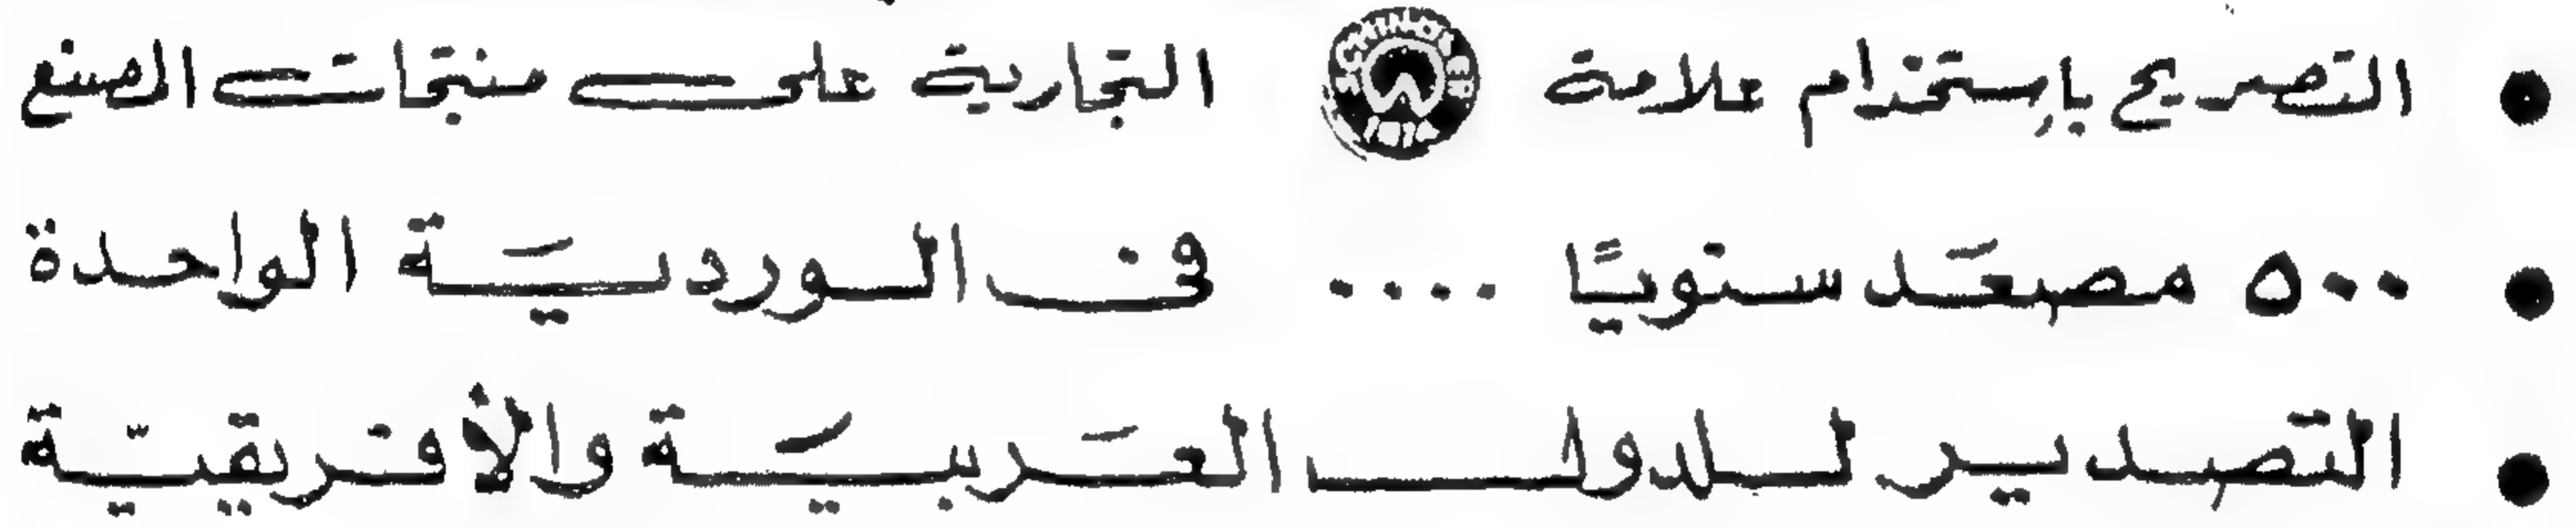 ● التصريح بإستخدام علامة SCHINDLER 1874 التجارية على منتجات المصنع
● ٥٠٠ مصعَد سنويًا .... فى الورديَة الواحدة
● التصدير للدول العَربيَة والأفريقيّة